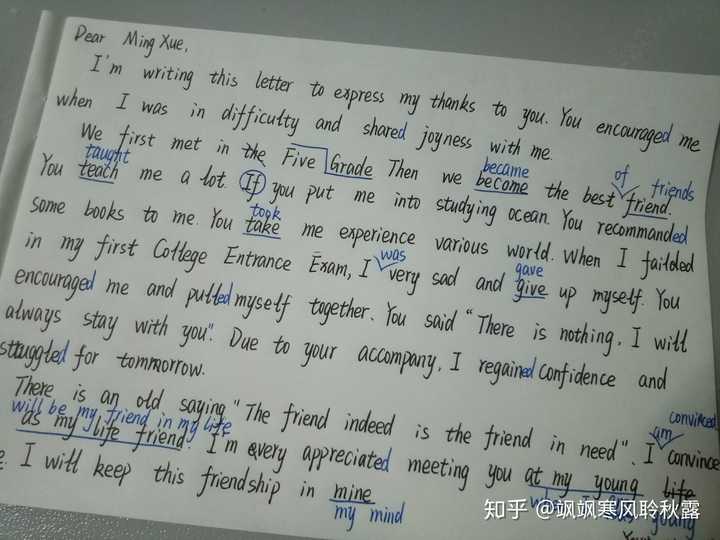 Dear Ming Xue,
I'm writing this letter to express my thanks to you. You encouraged me
when I was in difficulty and shared joyness with me.
We first met in the Five Grade Then we become the best friend.
taught became of friends
You teach me a lot. If you put me into studying ocean. You recommanded
took
some books to me. You take me experience various world. When I failded
was gave
in my first College Entrance Exam, I very sad and give up myself. You
encouraged me and pulled myself together. You said "There is nothing. I will
always stay with you". Due to your accompany, I regained confidence and
struggled for tommorrow.
There is an old saying "The friend indeed is the friend in need". I convince
will be my friend in my life am convinced
as my life friend. I'm every appreciated meeting you at my young life
I will keep this friendship in mine
my mind
young
知乎 @飒飒寒风聆秋露